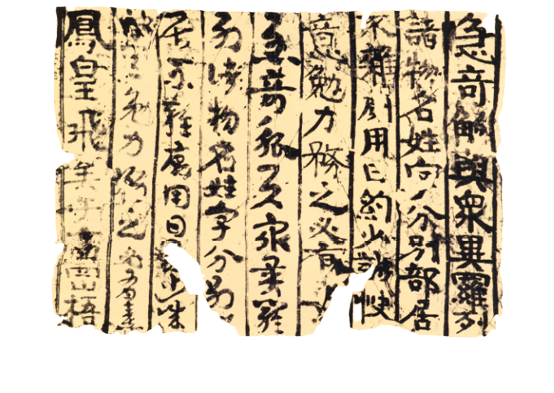 急奇觚與衆異羅列
諸物名姓字分別部居
不雜厠用日約少誠快
意勉力務之必有
急奇觚與衆異羅列
諸物名姓字分別部
居不雜厠用日
意勉力務之必有憙
鳳皇飛梧